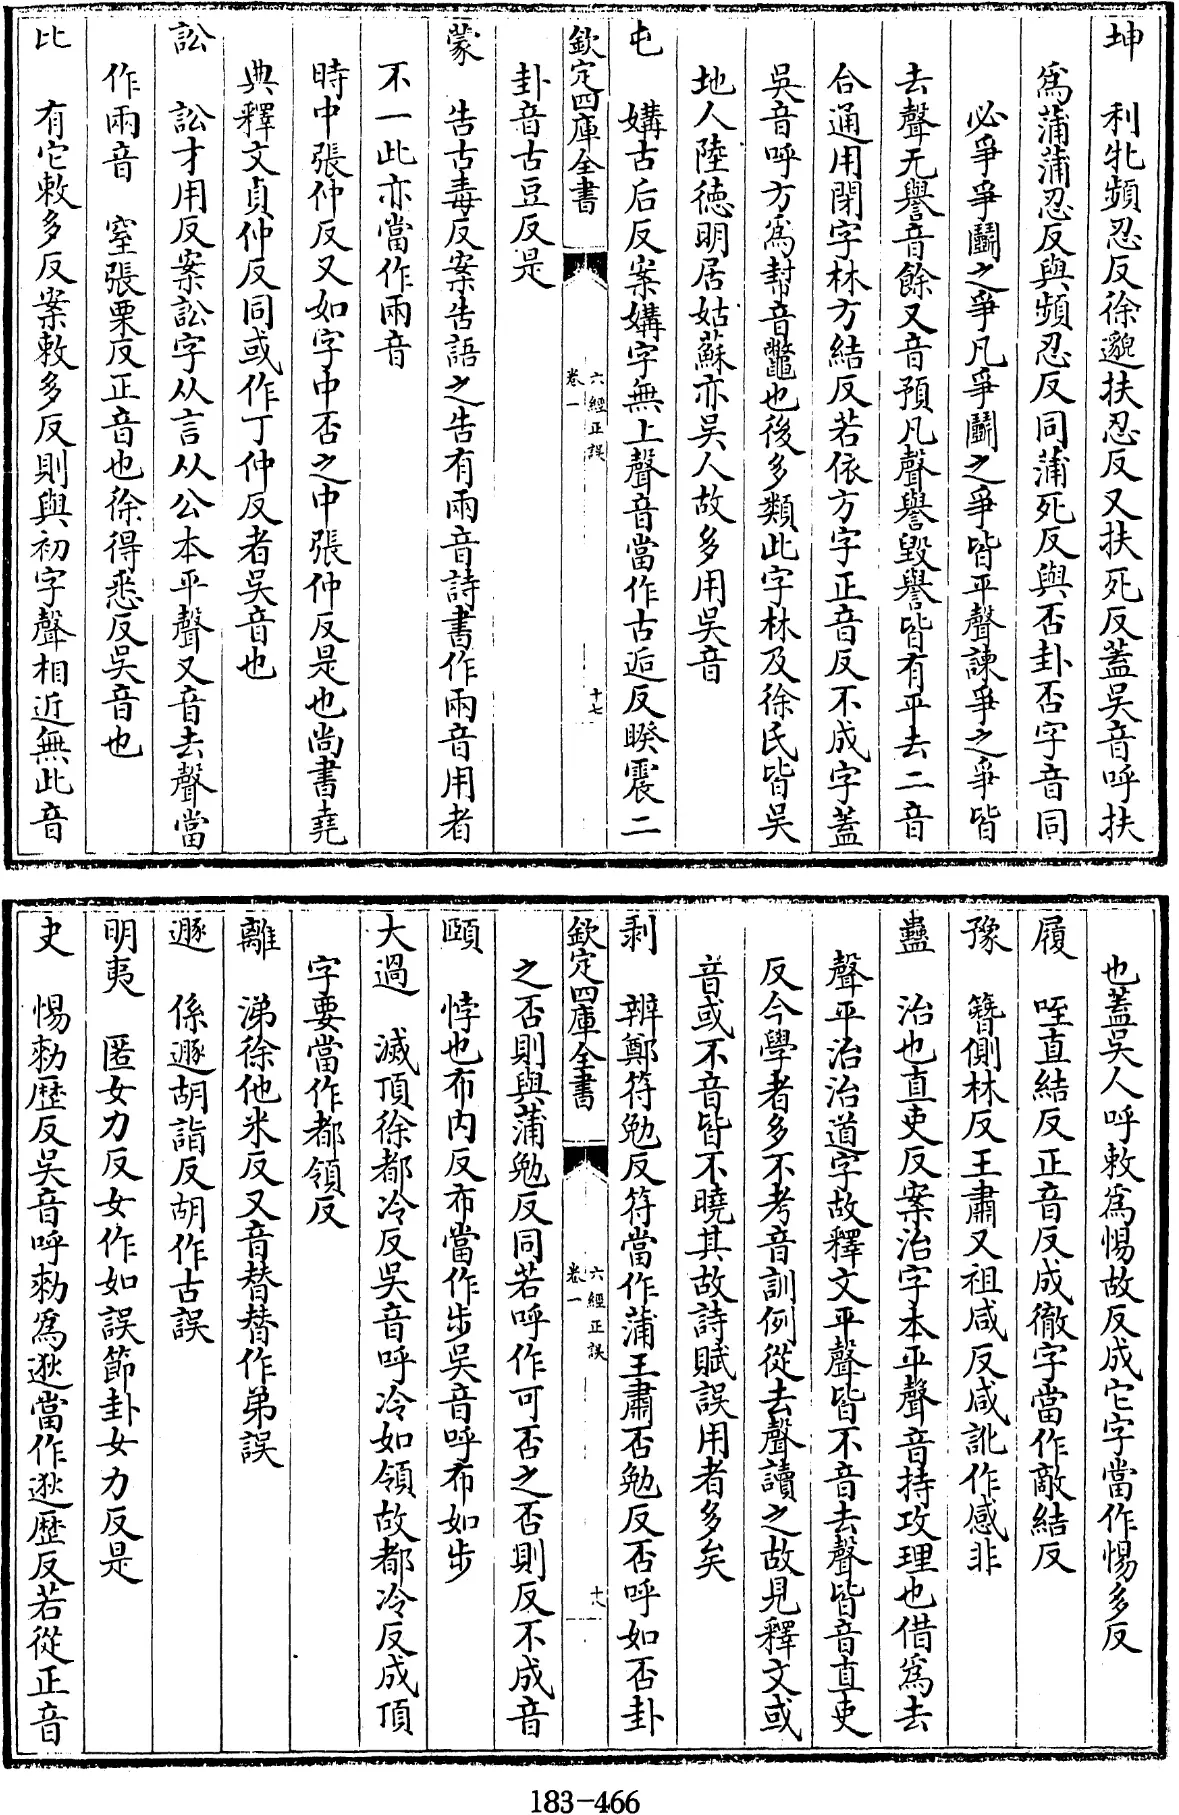 坤 利牝頻忍反徐邈扶忍反又扶死反蓋吳音呼扶
爲蒲蒲忍反與頻忍反同蒲死反與否卦否字音同
必爭爭鬭之爭凡爭鬭之爭皆平聲諫爭之爭皆
去聲无譽音餘又音預凡聲譽毀譽皆有平去二音
合通用閉字林方結反若依方字正音反不成字蓋
吳音呼方爲幇音鼈也後多類此字林及徐氏皆吳
地人陸德明居姑蘇亦吳人故多用吳音
屯 媾古后反案媾字無上聲音當作古逅反暌震二
欽定四庫全書
六經正誤
卷一
十七
卦音古豆反是
蒙 告古毒反案告語之告有兩音詩書作兩音用者
不一此亦當作兩音
時中張仲反又如字中否之中張仲反是也尚書堯
典釋文貞仲反同或作丁仲反者吳音也
訟 訟才用反案訟字从言从公本平聲又音去聲當
作兩音 窒張栗反正音也徐得悉反吳音也
比 有它敕多反案敕多反則與初字聲相近無此音
也蓋吳人呼敕爲惕故反成它字當作惕多反
履 咥直結反正音反成徹字當作敵結反
豫 簪側林反王肅又祖咸反咸訛作感非
蠱 治也直吏反案治字本平聲音持攻理也借爲去
聲平治治道字故釋文平聲皆不音去聲皆音直吏
反今學者多不考音訓例從去聲讀之故見釋文或
音或不音皆不曉其故詩賦誤用者多矣
剥 辨鄭符勉反符當作蒲王肅否勉反否呼如否卦
欽定四庫全書
六經正誤
卷一
十八
之否則與蒲勉反同若呼作可否之否則反不成音
頤 悖也布内反布當作步吳音呼布如步
大過 滅頂徐都冷反吳音呼冷如領故都冷反成頂
字要當作都領反
離 涕徐他米反又音替替作弟誤
遯 係遯胡詣反胡作古誤
明夷 匿女力反女作如誤節卦女力反是
夬 惕勑歷反吳音呼勑爲逖當作逖歷反若從正音
183-466